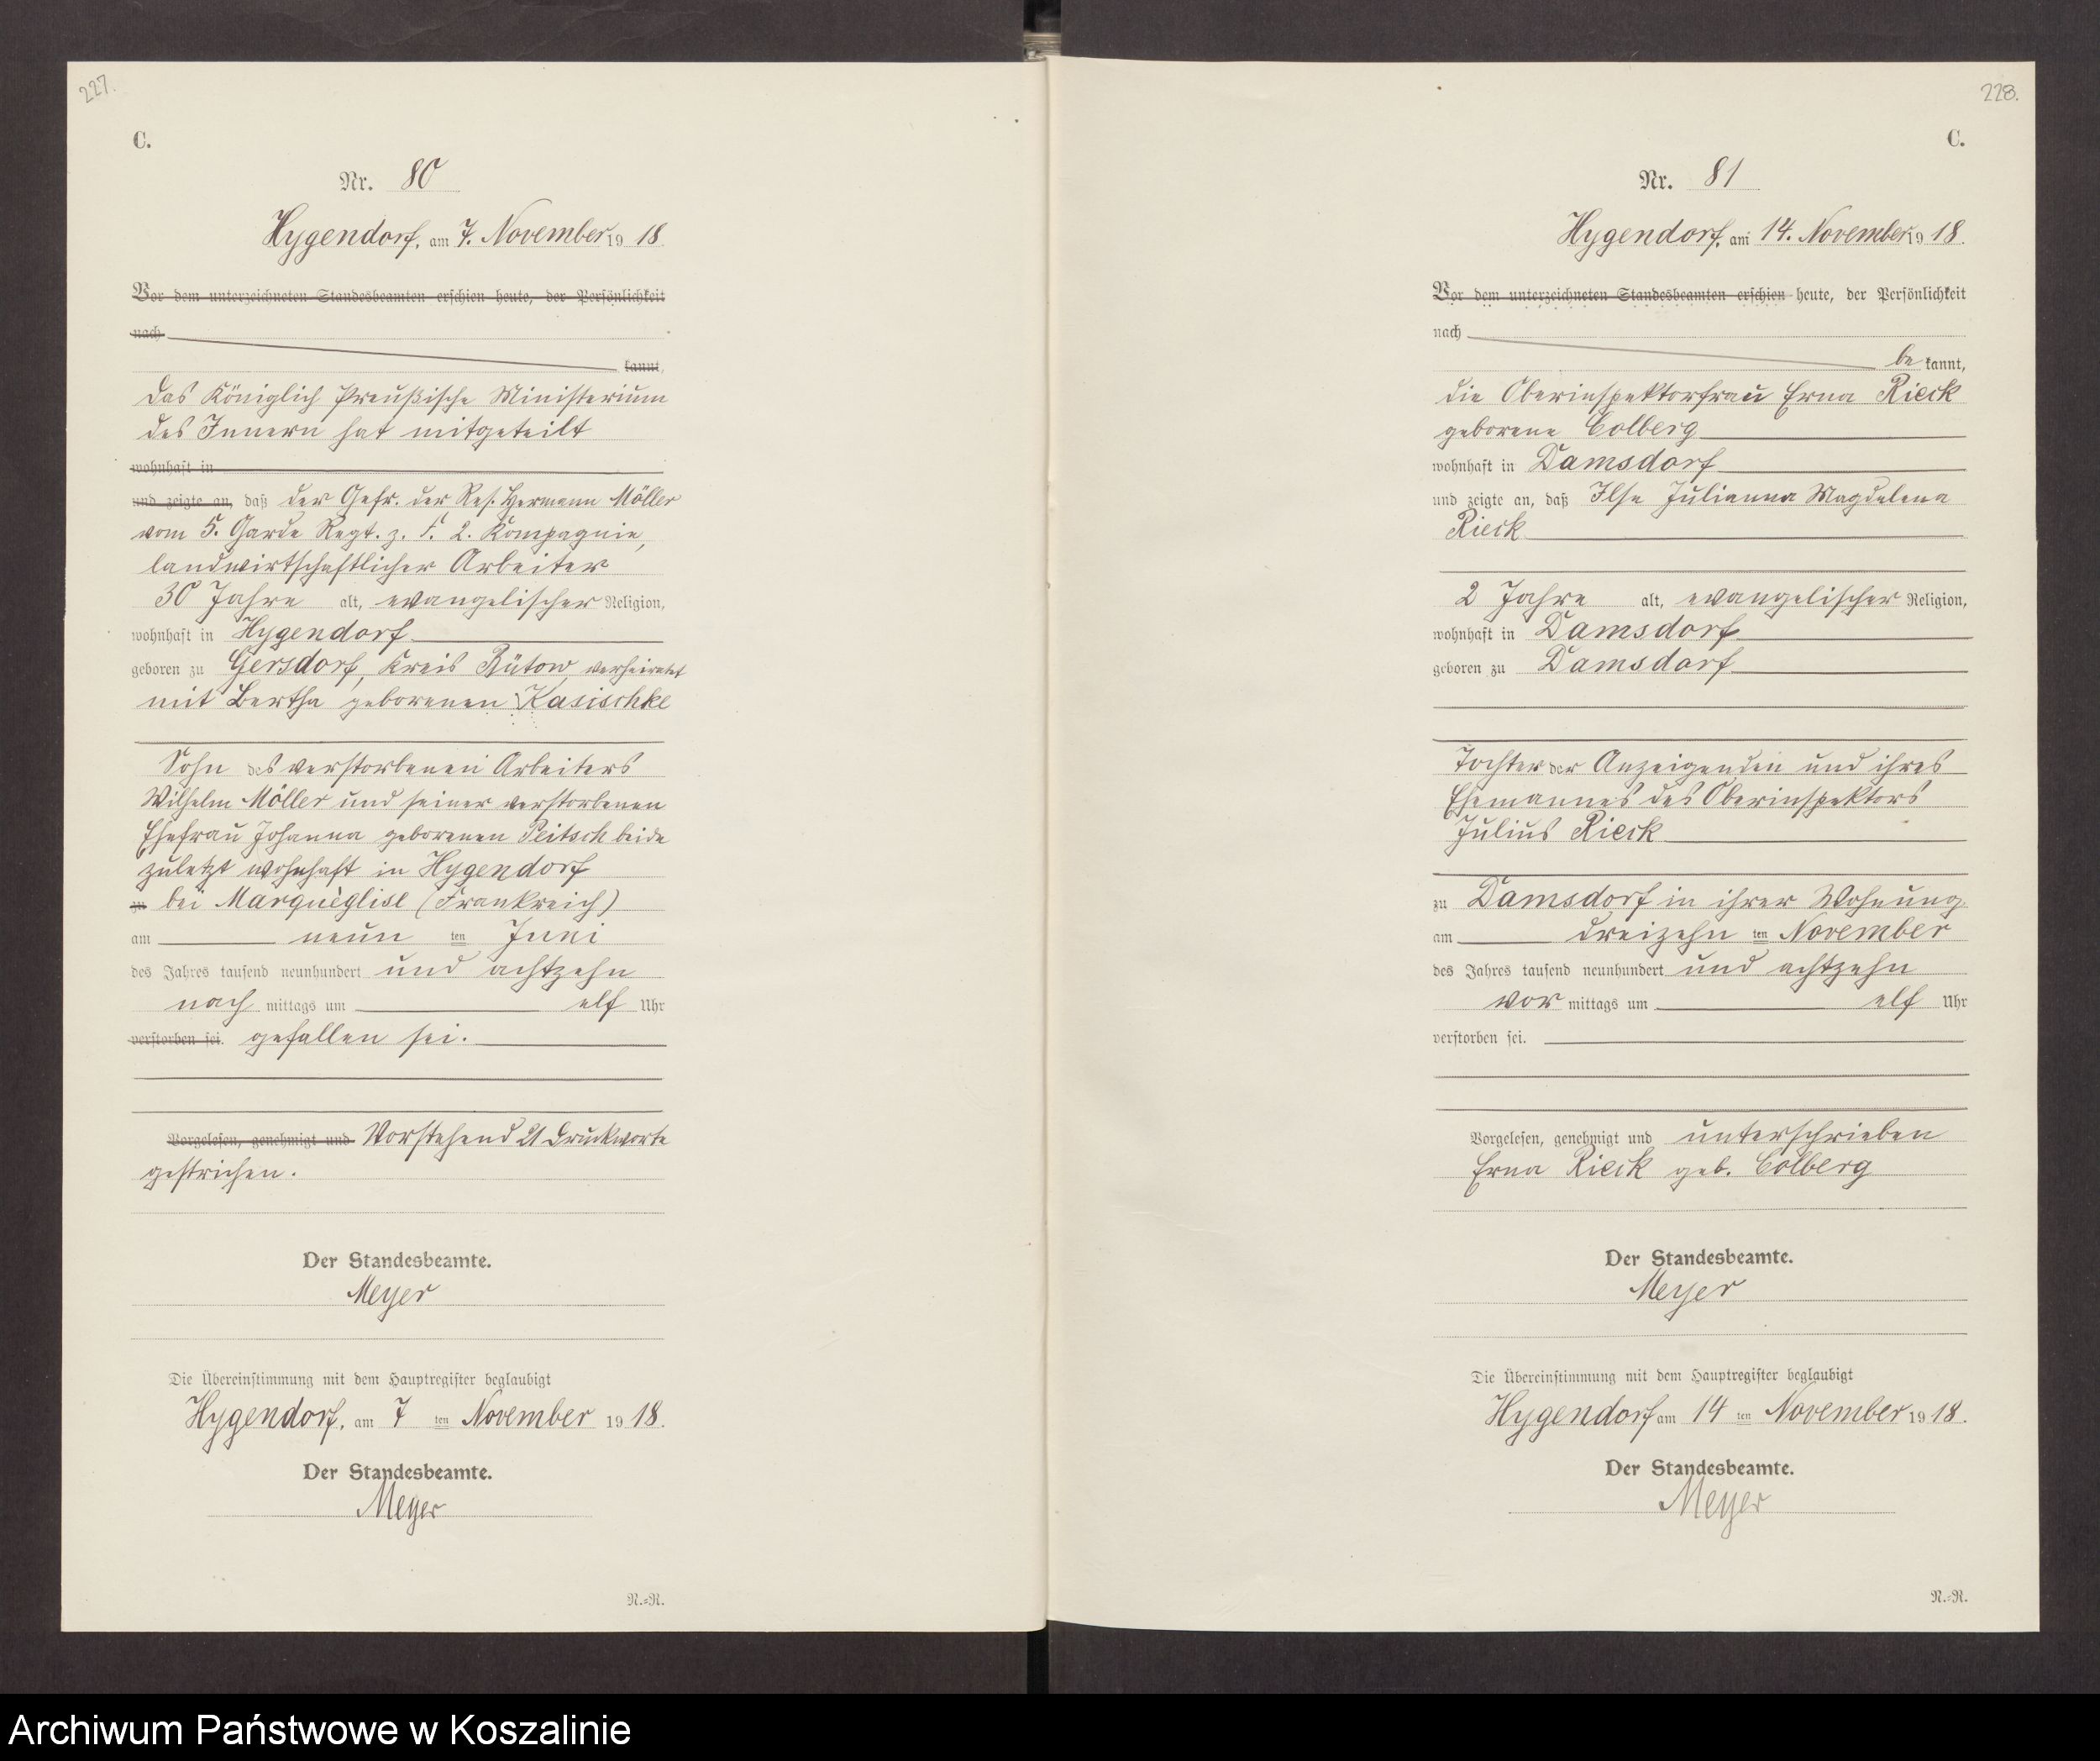 227.
C.
Nr. 80
Hygendorf, am 7. November 1918.
Vor dem unterzeichneten Standesbeamten erschien heute, der Persönlichkeit
nach
kannt,
das Königlich Preußische Ministerium
des Innern hat mitgeteilt
wohnhaft in
und zeigte an, daß der Gefr. der Res. Hermann Möller
vom 5. Garde Regt. z. F. 2. Kompagnie,
landwirtschaftlicher Arbeiter
30 Jahre alt, evangelischer Religion,
wohnhaft in Hygendorf
geboren zu Gersdorf, Kreis Bütow, verheiratet
mit Bertha geborenen Kasischke
Sohn des verstorbenen Arbeiters
Wilhelm Möller und seiner verstorbenen
Ehefrau Johanna geborenen Peitsch beide
zuletzt wohnhaft in Hygendorf
zu bei Marquéglise (Frankreich)
am neun ten Juni
des Jahres tausend neunhundert und achtzehn
nach mittags um elf Uhr
verstorben sei. gefallen sei.
Vorgelesen, genehmigt und Vorstehend 21 Druckworte
gestrichen.
Der Standesbeamte.
Meyer
Die Übereinstimmung mit dem Hauptregister beglaubigt
Hygendorf, am 7 ten November 1918.
Der Standesbeamte.
Meyer
N.=R.
228.
C.
Nr. 81
Hygendorf, am 14. November 1918.
Vor dem unterzeichneten Standesbeamten erschien heute, der Persönlichkeit
nach
be kannt,
die Oberinspektorfrau Erna Rieck
geborene Colberg
wohnhaft in Damsdorf
und zeigte an, daß Ilse Julianna Magdalena
Rieck
2 Jahre alt, evangelischer Religion,
wohnhaft in Damsdorf
geboren zu Damsdorf
Tochter der Anzeigenden und ihres
Ehemannes des Oberinspektors
Julius Rieck
zu Damsdorf in ihrer Wohnung
am dreizehn ten November
des Jahres tausend neunhundert und achtzehn
vor mittags um elf Uhr
verstorben sei.
Vorgelesen, genehmigt und unterschrieben
Erna Rieck geb. Colberg
Der Standesbeamte.
Meyer
Die Übereinstimmung mit dem Hauptregister beglaubigt
Hygendorf am 14 ten November 1918.
Der Standesbeamte.
Meyer
N.=R.
Archiwum Państwowe w Koszalinie